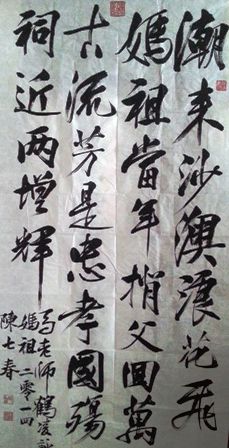 潮来沙澳浪花飛
媽祖當年揹父回萬
古流芳是忠孝國殤
祠近两增輝
馬老師鶴凌詠
媽祖二零一四
陳七春